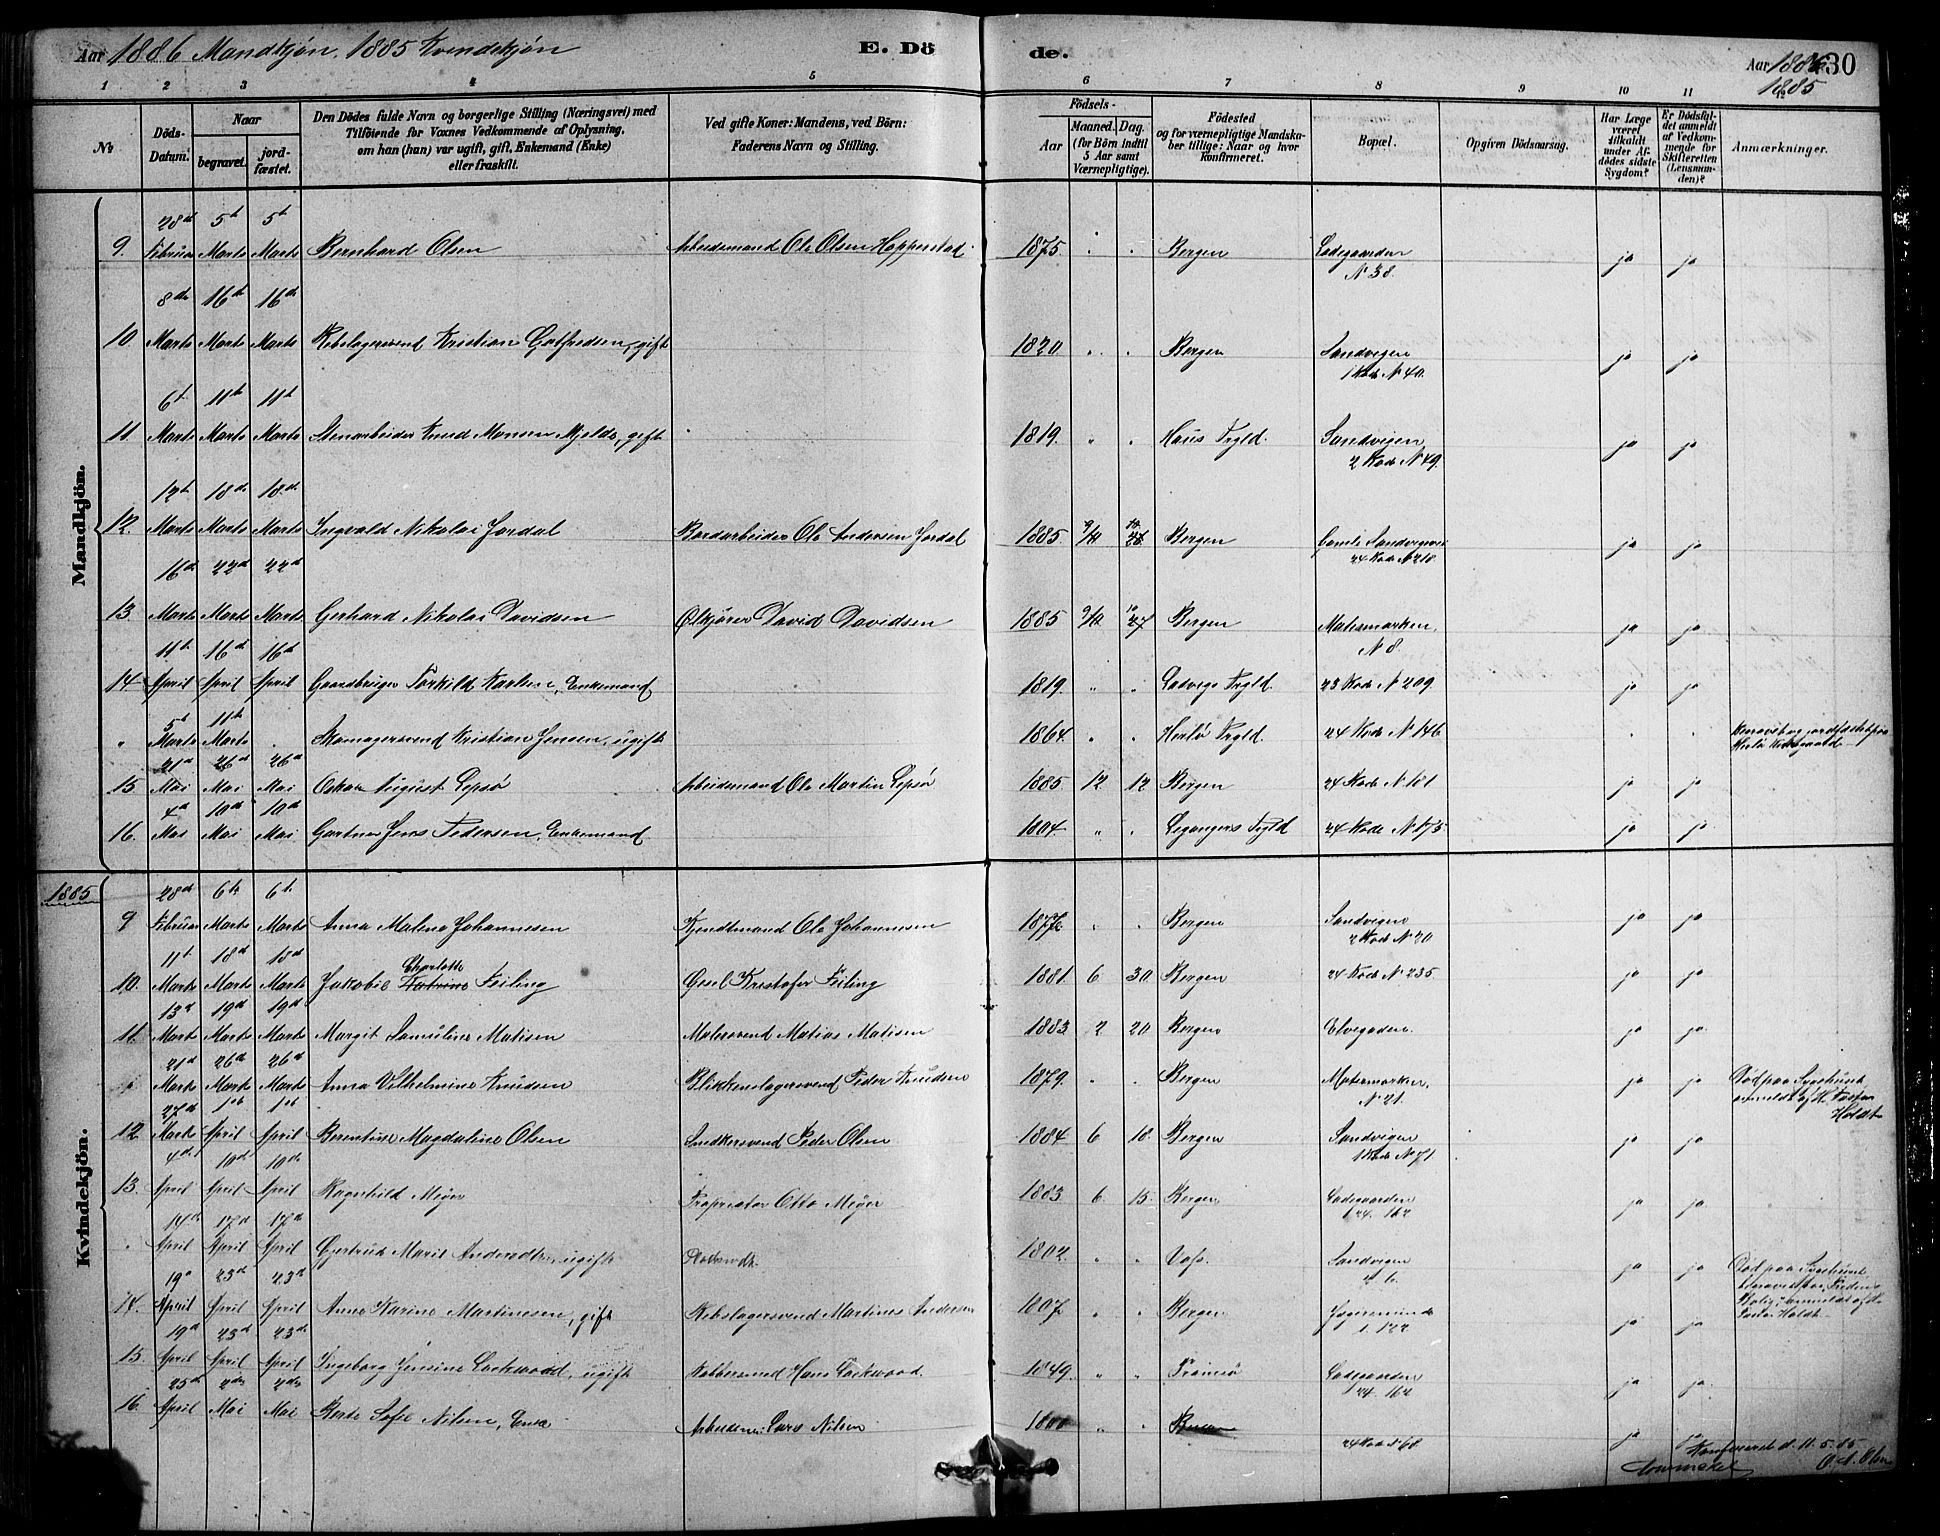 Aar 1886 Mandkjøn, 1885 Kvindekjøn
E. Dö
de.
Aar 1886 130
1885
1 2 3 4 5 6 7 8 9 10 11 12
No
Döds-Datum.
Naar
begravet.
jordfæstet.
Den Dödes fulde Navn og borgerlige Stilling (Næringsvei) med
Tilföiende for Voxnes Vedkommende af Oplysning,
om han (hun) var ugift, gift, Enkemand (Enke)
eller fraskilt.
Ved gifte Koner: Mandens, ved Börn:
Faderens Navn og Stilling.
Födsels-
Aar
Maaned. Dag.
(for Börn indtil
5 Aar samt
Værnepligtige).
Födested
og for værnepligtige Mandska-
ber tillige: Naar og hvor
konfirmeret.
Bopæl.
Opgiven Dödsaarsag.
Har Læge
været
tilkaldt
under Af-
dödes sidste
Sygdom?
Er Dödsfal-
det anmeldt
af Vedkom-
mende for
Skifteretten
(Lensman-
den)?
Anmærkninger.
Mandkjön.
28de 5te 5te
9. Februar Marts Marts Bernhard Olsen Arbeidsmand Ole Olsen Hopperstad 1875. " " Bergen Ladegaarden ja ja
N 38.
8de 16de 16de
10. Marts Marts Marts Rebslagersvend Kristian Gotfredsen, gift 1820. " " Bergen Sandvigen ja ja
1 Rode N 40.
6te 11te 11te
11. Marts Marts Marts Stenarbeider Knud Monsen Mjelde, gift 1819. " " Haus Prgld. Sandvigen ja ja
2 Rode N 49.
12te 18de 18de
12. Marts Marts Marts Ingvald Nikolai Jordal Bordarbeider Ole Andersen Jordal 1885 Bergen Gamle Sandvigsvei ja ja
24 Rode N 218.
16de 22de 22de
13. Marts Marts Marts Gerhard Nikolai Davidsen Ølkjører David Davidsen 1885 Bergen Matismarken. ja ja
N 8.
11te 16de 16de
14. April April April Gaardbruger Torkild Karlsen, Enkemand 1819. " " Ladvigs Prgld. 23 Rode N 209. ja ja
5te 11te
" Marts Marts Skomagersvend Kristian Jensen, ugift 1864. " " Herlø Prgld. 24 Rode N 146 Begravet og jordfæstet paa
Herlø Kirkegaard
21de 26de 26de
15. Mai Mai Mai Oskar August Lepsø Arbeidsmand Ole Martin Lepsø 1885 12 12 Bergen 24 Rode N 181 ja ja
4de 10de 10de
16. Mai Mai Mai Gartner Jens Pedersen, Enkemand 1804. " " Leganger Prgld 24 Rode N 175. ja ja
1885
Kvindekjön.
28de 6te 6te
9 Februar Marts Marts Anna Malene Johannesen Kjendtmand Ole Johannesen 1877. " " Bergen Sandvigen ja ja
2 Rode N 20
11te 18de 18de
Charlotte
10. Marts Marts Marts Jakobie Feiling Gesel Kristofer Feiling 1881. 6 30 Bergen 24 Rode N 235. ja ja
13de 19de 19de
11. Marts Marts Marts Margit Samuline Matisen Malersvend Matias Matisen 1883 2 20 Bergen Elvegaden. ja ja
21de 26de 26de
" Marts Marts Marts Anna Vilhelmine Knudsen Blikkenslagersvend Peder Knudsen 1879. " " Bergen Matismarken. ja ja Død paa Sygehuset
N 21. anmeldt af Hr. Pastor
Holdt
27de 1ste 1ste
12. Marts April April Berentine Magdaline Olsen Snedkersvend Peder Olsen 1884 6 18. Bergen Sandvigen ja ja
1 Rode N 71.
4de 10de 10de
13. April April April Ragnhild Meyer Proprietær Otto Meyer 1883 6. 15. Bergen Ladegaarden ja ja
24. 162
14de 17de 17de
" April April April Gjertrud Marie Andersdtr, ugift 1802. " " Voss. Sandvigen ja ja Død paa Sygehuset
19de 23de 23de
14. April April April Anne Karine Martinesen, gift Rebslagersvend Martines Andersen 1807. " " Bergen ja ja Pastor Holdt.
1. 122
19de 23de 23de
15. April April April Ingeborg Jensine Lockwood, ugift Kobbersmed Hans Lockwood. 1849. " " Tromsø Ladegaarden ja ja
24. 162
25de 2den 2den
16. April Mai Mai Berte Sofie Nilsen, Enke Arbeidsm. Lars Nilsen 1800 " " 24 Rode N 68 ja ja
Konfereret d. 11.5.85
O. A. Olsen